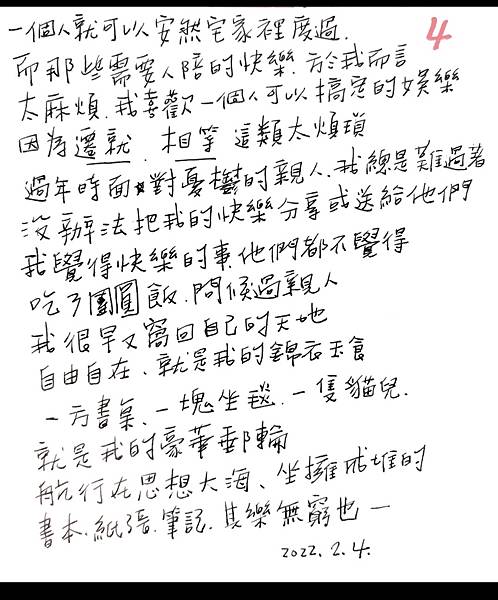 4
一個人就可以安然宅家裡度過.
而那些需要人陪的快樂.於我而言
太麻煩.我喜歡一個人可以搞定的娛樂
因為遷就、相等這類太煩瑣
過年時面對憂鬱的親人.我總是難過著
沒辦法把我的快樂分享或送給他們
我覺得快樂的事.他們都不覺得
吃了團圓飯.問候過親人
我很早又窩回自己的天地
自由自在、就是我的錦衣玉食
一方書氣、一塊坐毯、一隻貓兒.
就是我的豪華郵輪
航行在思想大海、坐擁成堆的
書本.紙張.筆記.其樂無窮也—
2022.2.4.